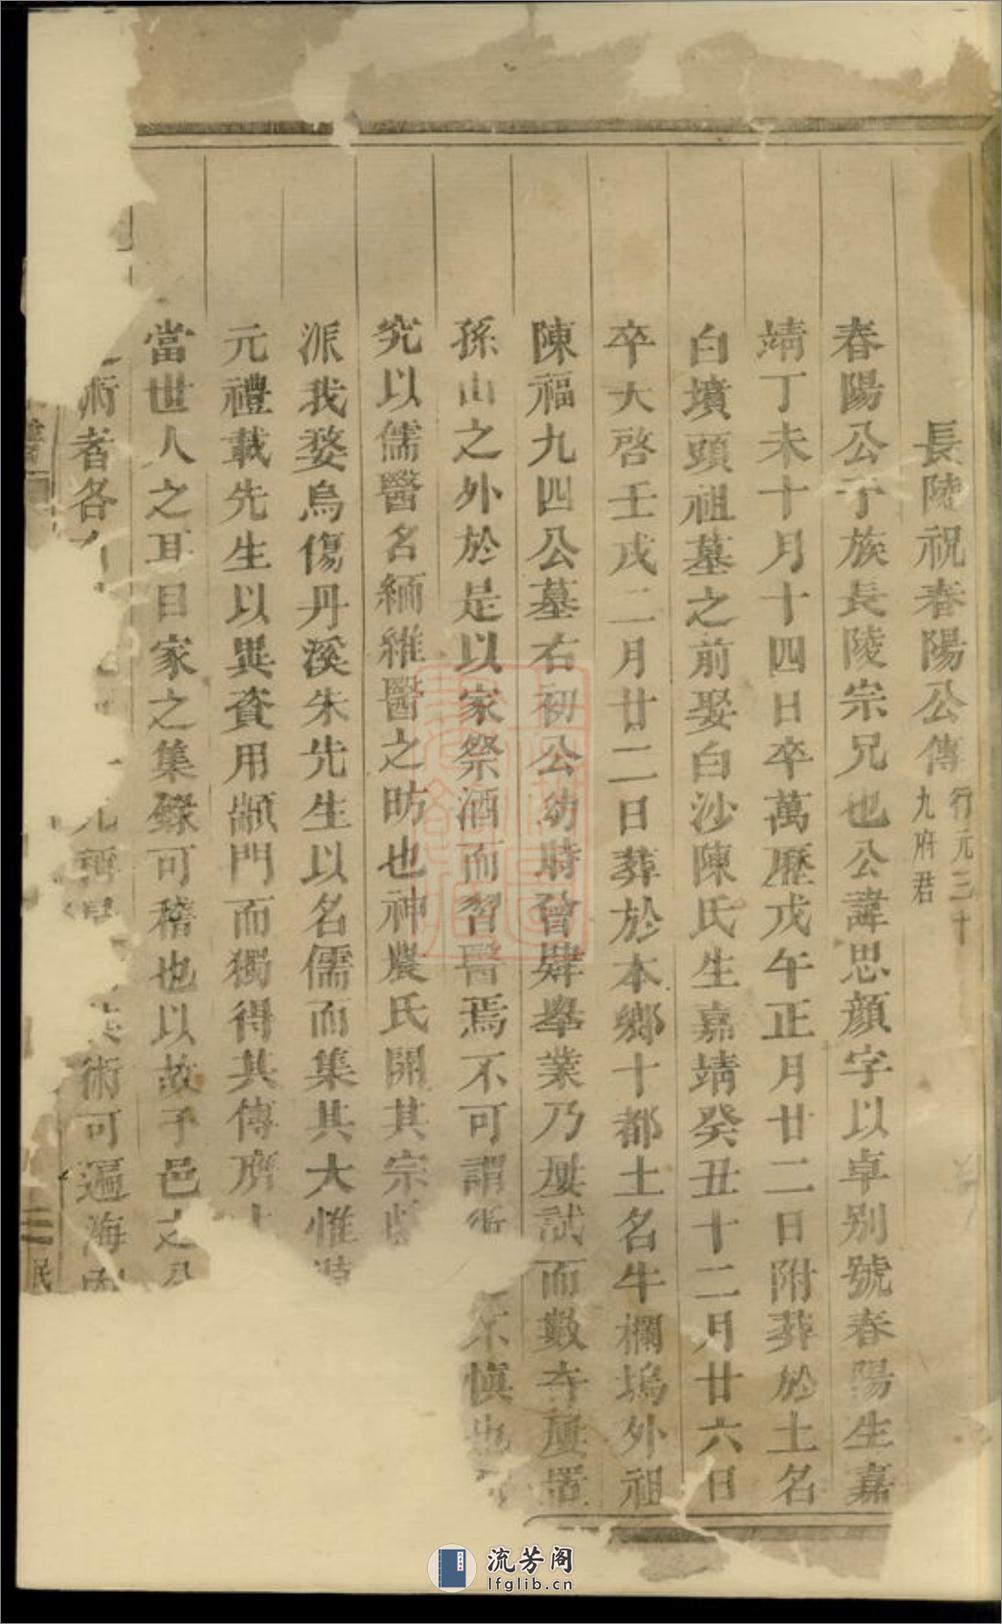 長陵祝春陽公傳 行元三十九府君
春陽公予族長陵宗兄也公諱思顔字以卓别號春陽生嘉
靖丁未十月十四日卒萬歷戊午正月廿二日附葬於土名
白墳頭祖墓之前娶白沙陳氏生嘉靖癸丑十二月廿六日
卒天啓壬戌二月廿二日葬於本鄉十都土名牛欄塢外祖
陳福九四公墓右初公幼時曾肄舉業乃屢試而數奇屢置
孫山之外於是以家祭酒而習醫焉不可謂術不慎也
究以儒醫名緬維醫之昉也神農氏開其宗
派我婺烏傷丹溪朱先生以名儒而集其大惟
元禮載先生以異資用顓門而獨得其傳
當世人之耳目家之集錄可稽也以故予邑之
術者各
術可遍海
流芳阁
lfglib.cn